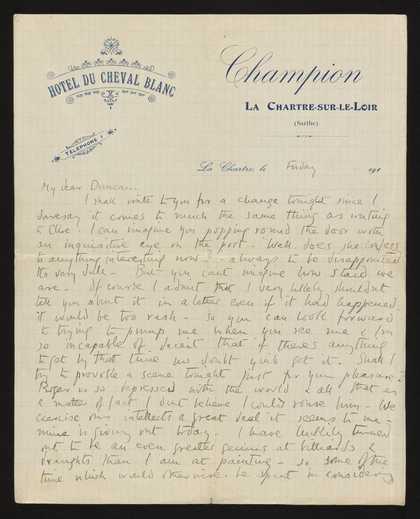 HOTEL DU CHEVAL BLANC
TELEPHONE
Champion
LA CHARTRE-SUR-LE-LOIR
(Sarthe)
La Chartre, le Friday 191
My dear Duncan.
I shall write to you for a change tonight since I
daresay it comes to much the same thing as writing
to Clive. I can imagine you popping round the door with
an inquisitive eye on the post. Well does she confess
to anything interesting now? - always to be disappointed
It's very dull - But you can't imagine how staid we
are. Of course I admit that I very likely shouldn't
tell you about it in a letter even if it had happened.
it would be too rash - so you can look forward
to trying to pump me when you see me & I'm
so incapable of deceit that if there's anything
to get by that time no doubt you'll get it. Shall I
try to provoke a scene tonight just for your pleasure?
Roger is so depressed with the world & all that as
a matter of fact I don't believe I could rouse him - We
exercise our intellects a great deal it seems to me -
mine is giving out today. I have luckily turned
out to be an even greater genius at billiards &
draughts than I am at painting - so some of the
time which would otherwise be spent in considering